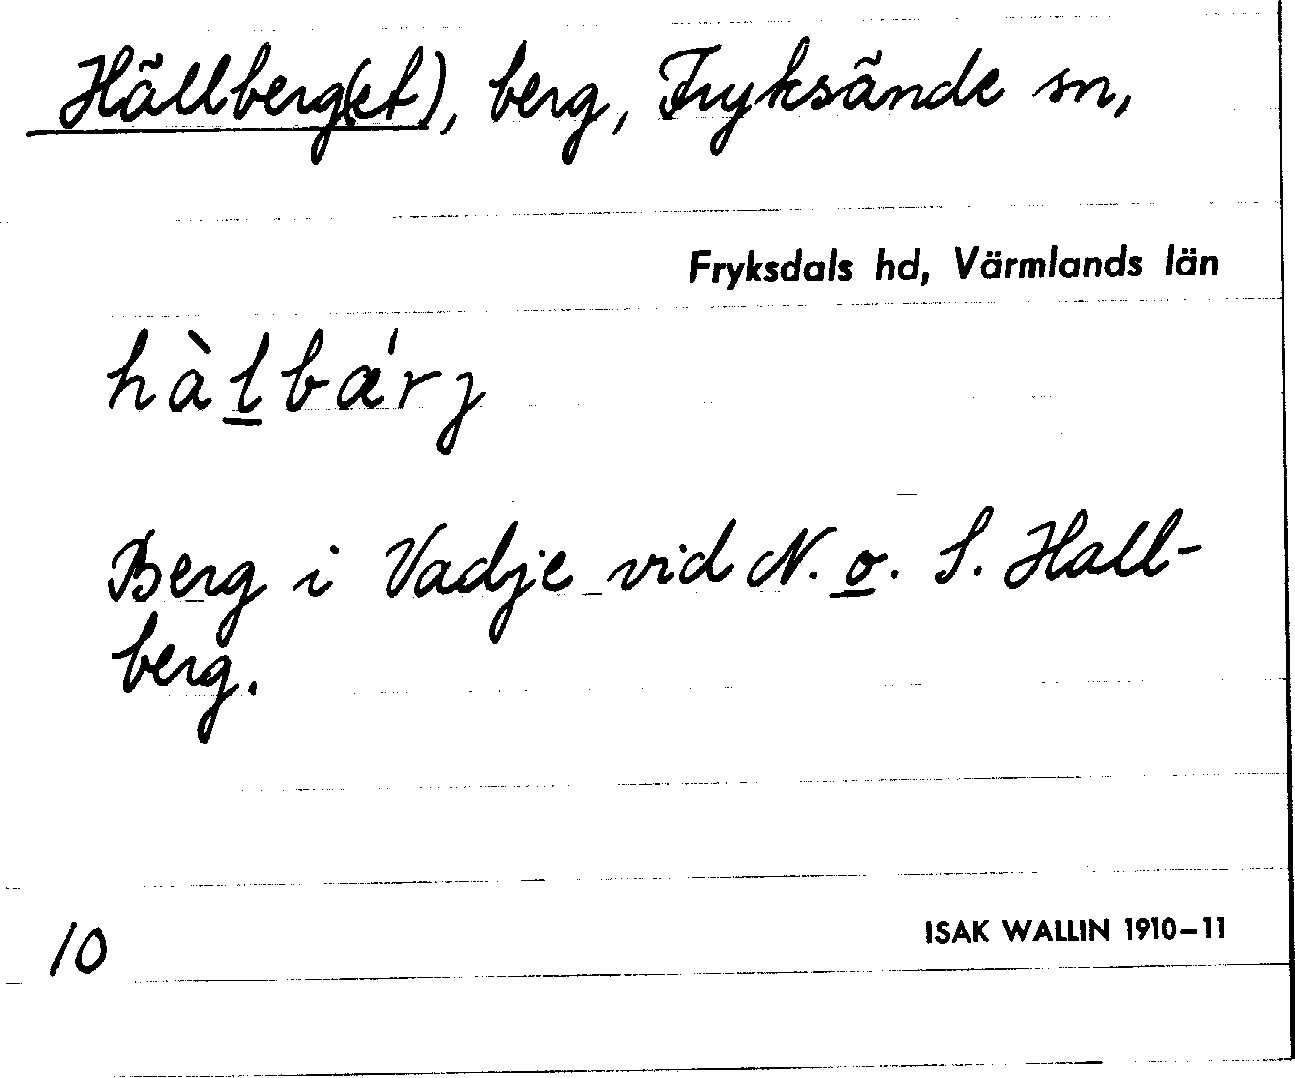 Hällberg(et), berg, Fryksände sn,
Fryksdals hd, Värmlands län
hàl̲bǽrj
Berg i Vadje vid N. o. S. Hall-
berg.
10
ISAK WALLIN 1910–11